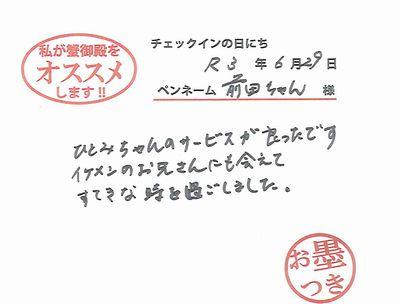 私が蟹御殿を
オススメ
します!!
チェックインの日にち
R3年6月29日
ペンネーム 前田ちゃん 様
ひとみちゃんのサービスが良ったです
イケメンのお兄さんにも会えて
すてきな時を過ごしました。
お墨
つき